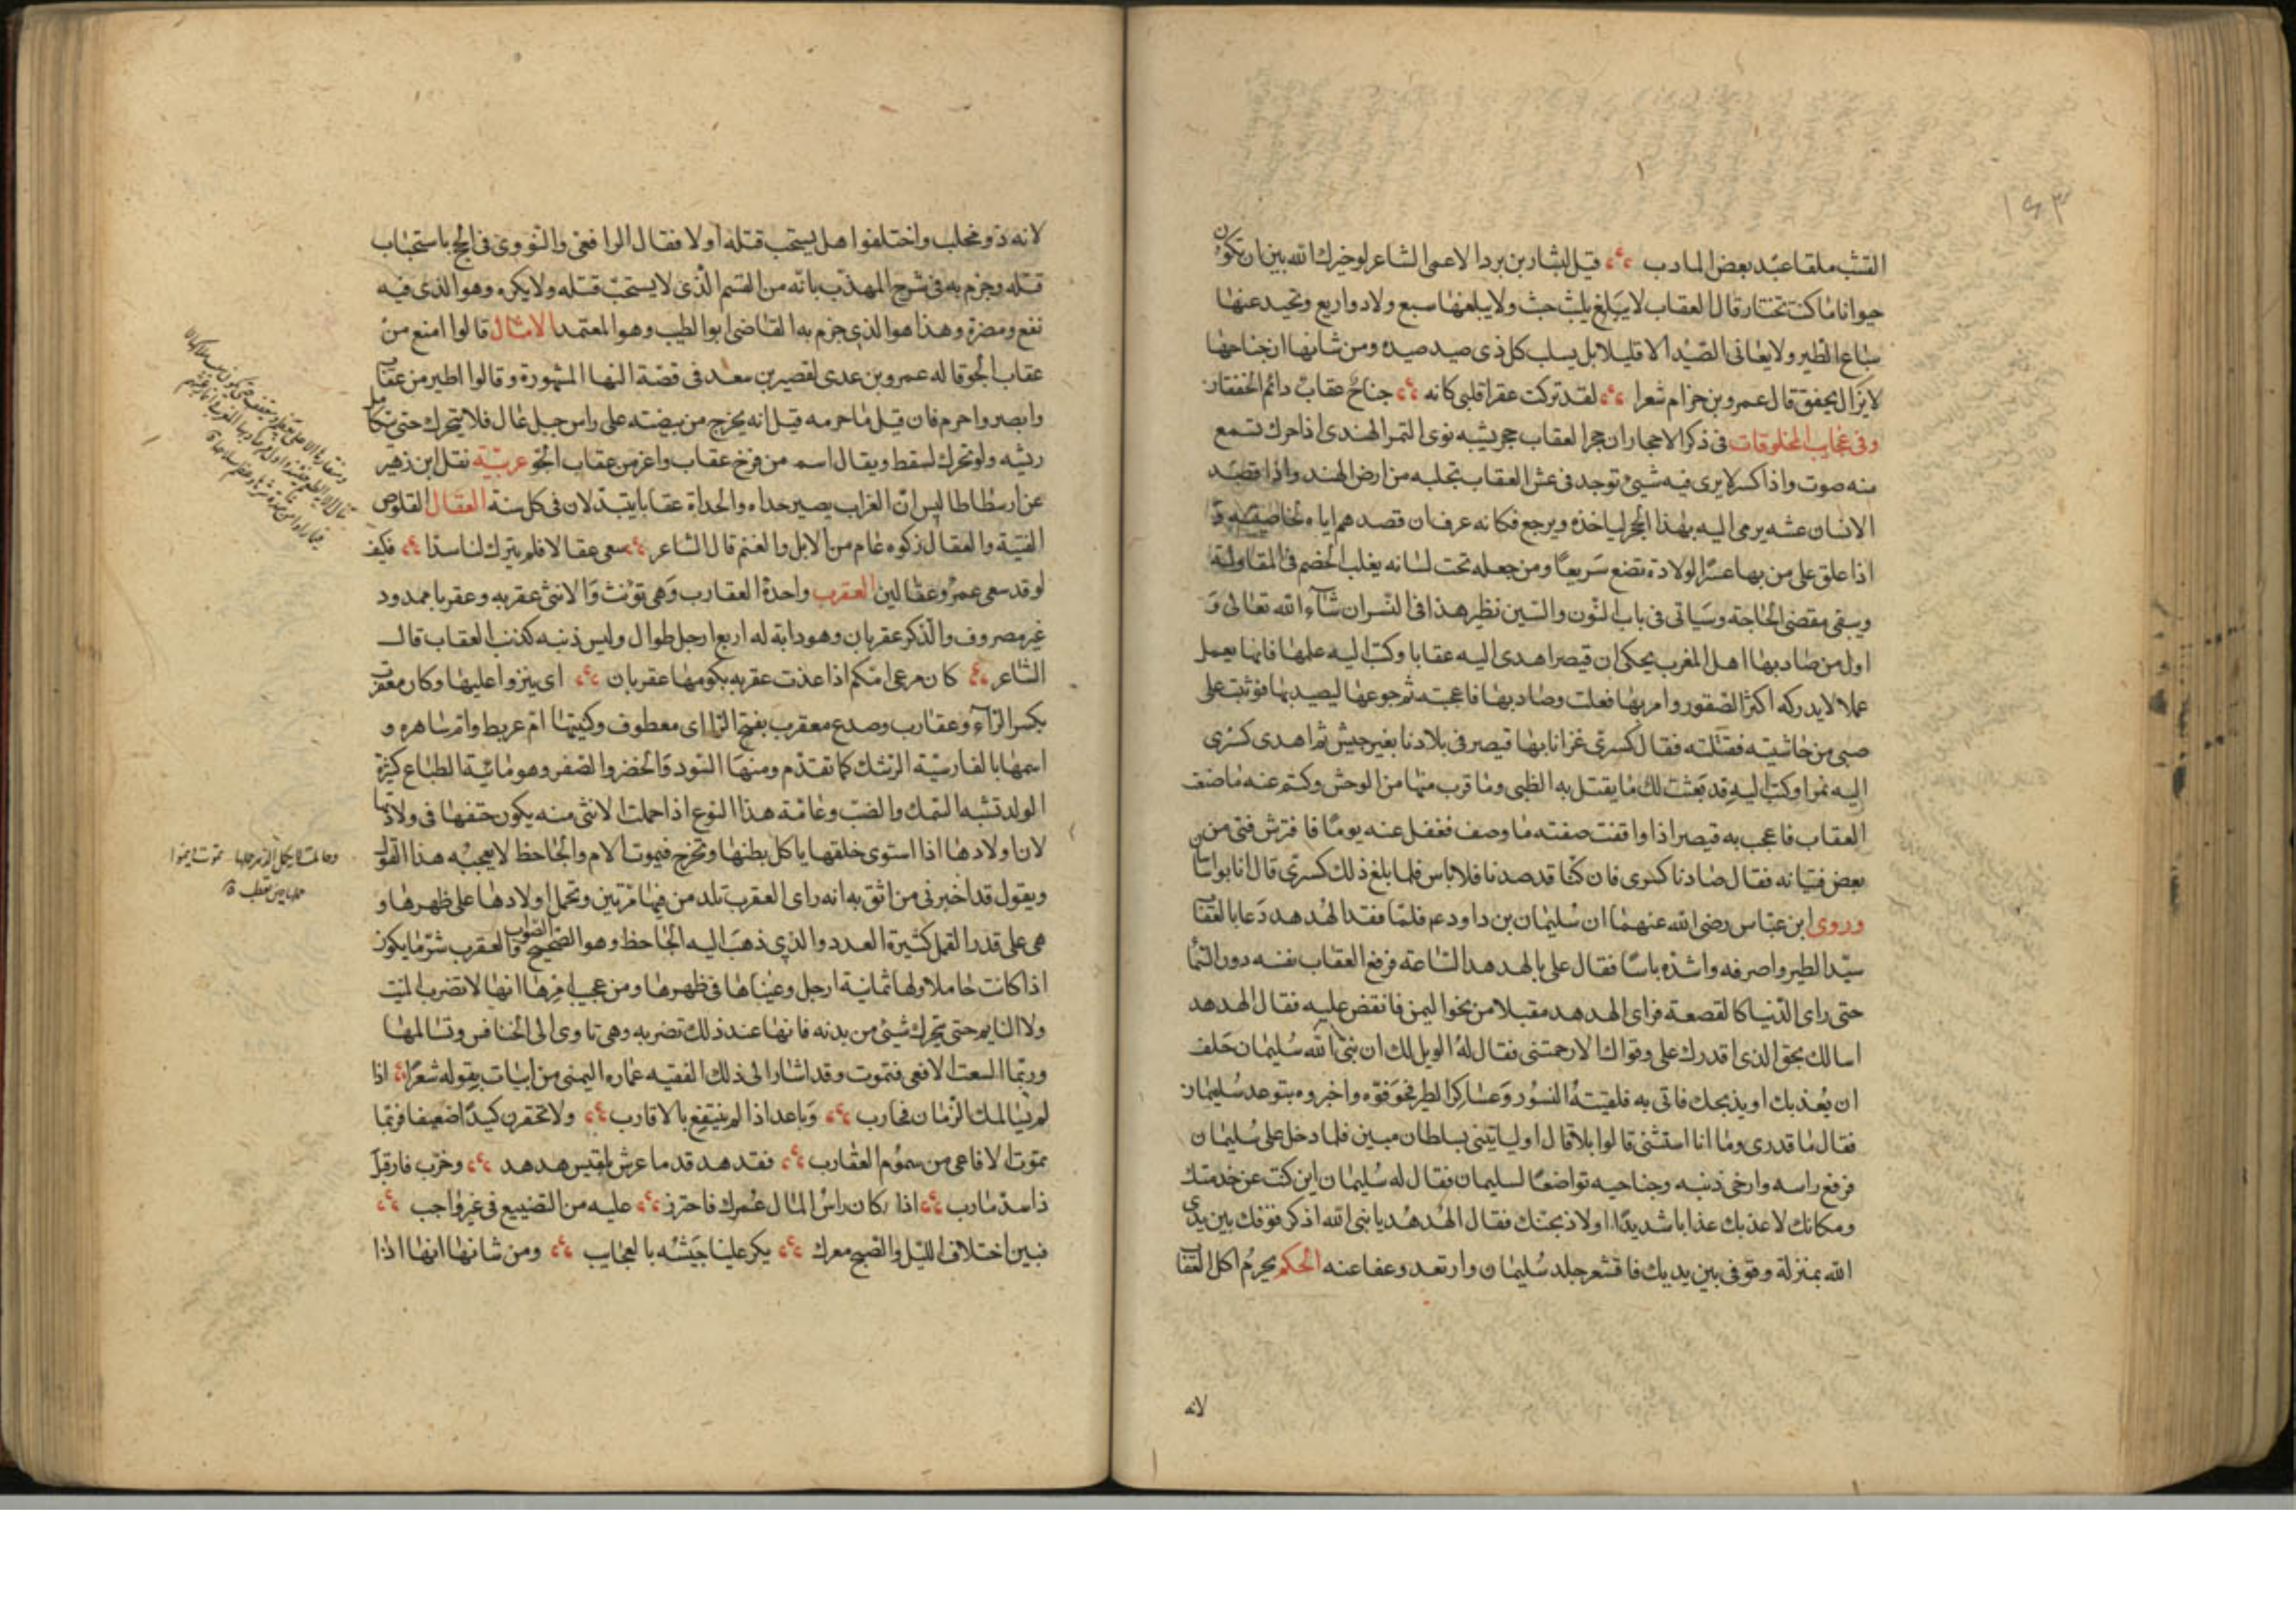 ١٤٣
القشب ملقا عند بعض المادب قيل لبشار بن برد الاعمى الشاعر لو خيرك الله بين ان تكون
حيوانا ما كنت تختار قال العقاب لا يبلغ يلبث حيث ولا يبلغها سبع ولا ذو اربع وتحيد عنها
سباع الطير ولا يعانى الصيد الا قليلا بل يسلب كل ذى صيد صيده ومن شانها ان جناحها
لا يزال يخفق قال عمرو بن حزام شعرا لقد تركت عقرا قلبى كانه جناح عقاب دائم الخفقان
وفى عجايب المخلوقات فى ذكر الاحجار ان حجر العقاب حجر يشبه نوى التمر الهندى اذا حرك تسمع
منه صوت واذا كسر لا يرى فيه شيئ توجد فى عش العقاب تجلبه من ارض الهند واذا قصد
الانسان عشه يرمى اليه بهذا الحجر لياخذه ويرجع فكانه عرف ان قصدهم اياه لخاصيته و
اذا علق على من بها عسر الولادة تضع سريعا ومن جعله تحت لسانه يغلب الخصم فى المقاولة
ويبقى مقضى الحاجة وسياتى فى باب النون والسين نظير هذا فى النسر ان شاء الله تعالى و
اول من صاد بها اهل المغرب يحكى ان قيصر اهدى اليه عقابا وكتب اليه علمها فانها يعمل
عملا لا يدركه اكثر الصقور وامر بها فعلت وصاد بها فاعجبته ثم جوعها ليصيد بها فوثبت على
صبى من حاشيته فقتلته فقال كسرى غزانا بها قيصر فى بلادنا بغير جيش ثم اهدى كسرى
اليه نمرا وكتب اليه قد بعثت لك ما يقتل به الظبى وما قرب منها من الوحش وكتم عنه ما صنعت
العقاب فاعجب به قيصر اذا وافقت صفته ما وصف فغفل عنه يوما فافترش فتى من
بعض فتيانه فقال صادنا كسرى فان كنا قد صدنا فلا باس فلما بلغ ذلك كسرى قال انا بواسا
وروى ابن عباس رضى الله عنهما ان سليمان بن داود عم فلما فقد الهدهد دعا بالعقاب
سيد الطير واصرفه واشده باسا فقال على بالهدهد الساعة فرفع العقاب نفسه دون السما
حتى راى الدنيا كالقصعة فراى الهدهد مقبلا من نحو اليمن فانقض عليه فقال الهدهد
اسالك بحق الذى اقدرك على وقواك الا رحمتنى فقال له الويل لك ان نبى الله سليمان حلف
ان يعذبك او يذبحك فاتى به فلقيته النسور وعساكر الطير فخوفوه واخبروه بتوعد سليمان
فقال ما قدرى وما انا استثنى قالوا بلا قال او لياتينى بسلطان مبين فلما دخل على سليمان
فرفع راسه وارخى ذنبه وجناحيه تواضعا لسليمان فقال له سليمان اين كنت عن خدمتك
ومكانك لاعذبك عذابا شديدا او لاذبحنك فقال الهدهد يا نبى الله اذكر فوقك بين يدى
الله بمنزلة وقوفى بين يديك فاقشعر جلد سليمان وارتعد وعفا عنه الحكم يحرم اكل العقاب
لانه
لانه ذو مخلب واختلفوا هل يستحب قتله او لا فقال الرافعى والنووى فى الحج باستحباب
قتله وجزم به فى شرح المهذب بانه من القسم الذى لا يستحب قتله ولا يكره وهو الذى فيه
نفع ومضرة وهذا هو الذى جزم به القاضى ابو الطيب وهو المعتمد الامثال قالوا امنع من
عقاب الجو قاله عمرو بن عدى لقصير بن سعد فى قصة النها المشهورة وقالوا اطير من عقاب
وابصر واحرم فان قيل ما حرمه قيل انه يخرج من بيضته على راس جبل عال فلا يتحرك حتى تكامل
ريشه ولو تحرك لسقط ويقال اسمع من فرخ عقاب واعز من عقاب الجو عربية نقل ابن زهير
عن ارسطاطاليس ان الغراب يصير حداه والحداة عقابا يتبدلان فى كل سنة العقال القلوص
الفتية والعقال زكوه عام من الابل والغنم قال الشاعر سعى عقالا فلم يترك لنا سبدا فكيف
لو قد سعى عمرو عقالين العقرب واحدة العقارب وهى تؤنث والانثى عقربه وعقربا ممدود
غير مصروف والذكر عقربان وهو دابة له اربع ارجل طوال وليس ذنبه كذنب العقاب قال
الشاعر كان مرعى امكم اذا غذت عقربه بكومها عقربان اى ينزوا عليها وكان معقرب
بكسر الراء وعقارب وصدغ معقرب بفتح الرا اى معطوف وكنيتها ام عريط وام ساهره و
اسمها بالفارسية الرشك كما تقدم ومنها السود والخضر والصفر وهو مائية الطباع كثيرة
الولد تشبه السمك والضب وعامة هذا النوع اذا حملت الانثى منه يكون حتفها فى ولادتها
لان اولادها اذا استوى خلقها ياكل بطنها وتخرج فيموت الام والجاحظ لا يعجبه هذا القول
ويقول قد اخبرنى من اثق به انه راى العقرب تلد من فيها مرتين وتحمل اولادها على ظهرها و
هى على قدر القمل كثيرة العدد والذى ذهب اليه الجاحظ وهو الصحيح الصواب والعقرب شر ما يكون
اذا كانت حاملا ولها ثمانية ارجل وعيناها فى ظهرها ومن عجيب امرها انها لا تضرب الميت
ولا النايم حتى يتحرك شيئ من بدنه فانها عند ذلك تضربه وهى تاوى الى الخنافس وتسالمها
وربما السعت الافعى فتموت وقد اشار الى ذلك الفقيه عماره اليمنى من ابيات بقوله شعرا اذا
لم يسالمك الزمان فحارب وباعد اذا لم ينتفع بالاقارب ولا تحقرن كيدا ضعيفا فربما
تموت الافاعى من سموم العقارب فقد هد قدما عرش بلقيس هدهد وخرب فار قبل
ذا سد مارب اذا كان راس المال عمرك فاحترز عليه من التضييع فى غير واجب
فبين اختلاف الليل والصبح معرك يكر علينا جيشه بالعجايب ومن شانها انها اذا